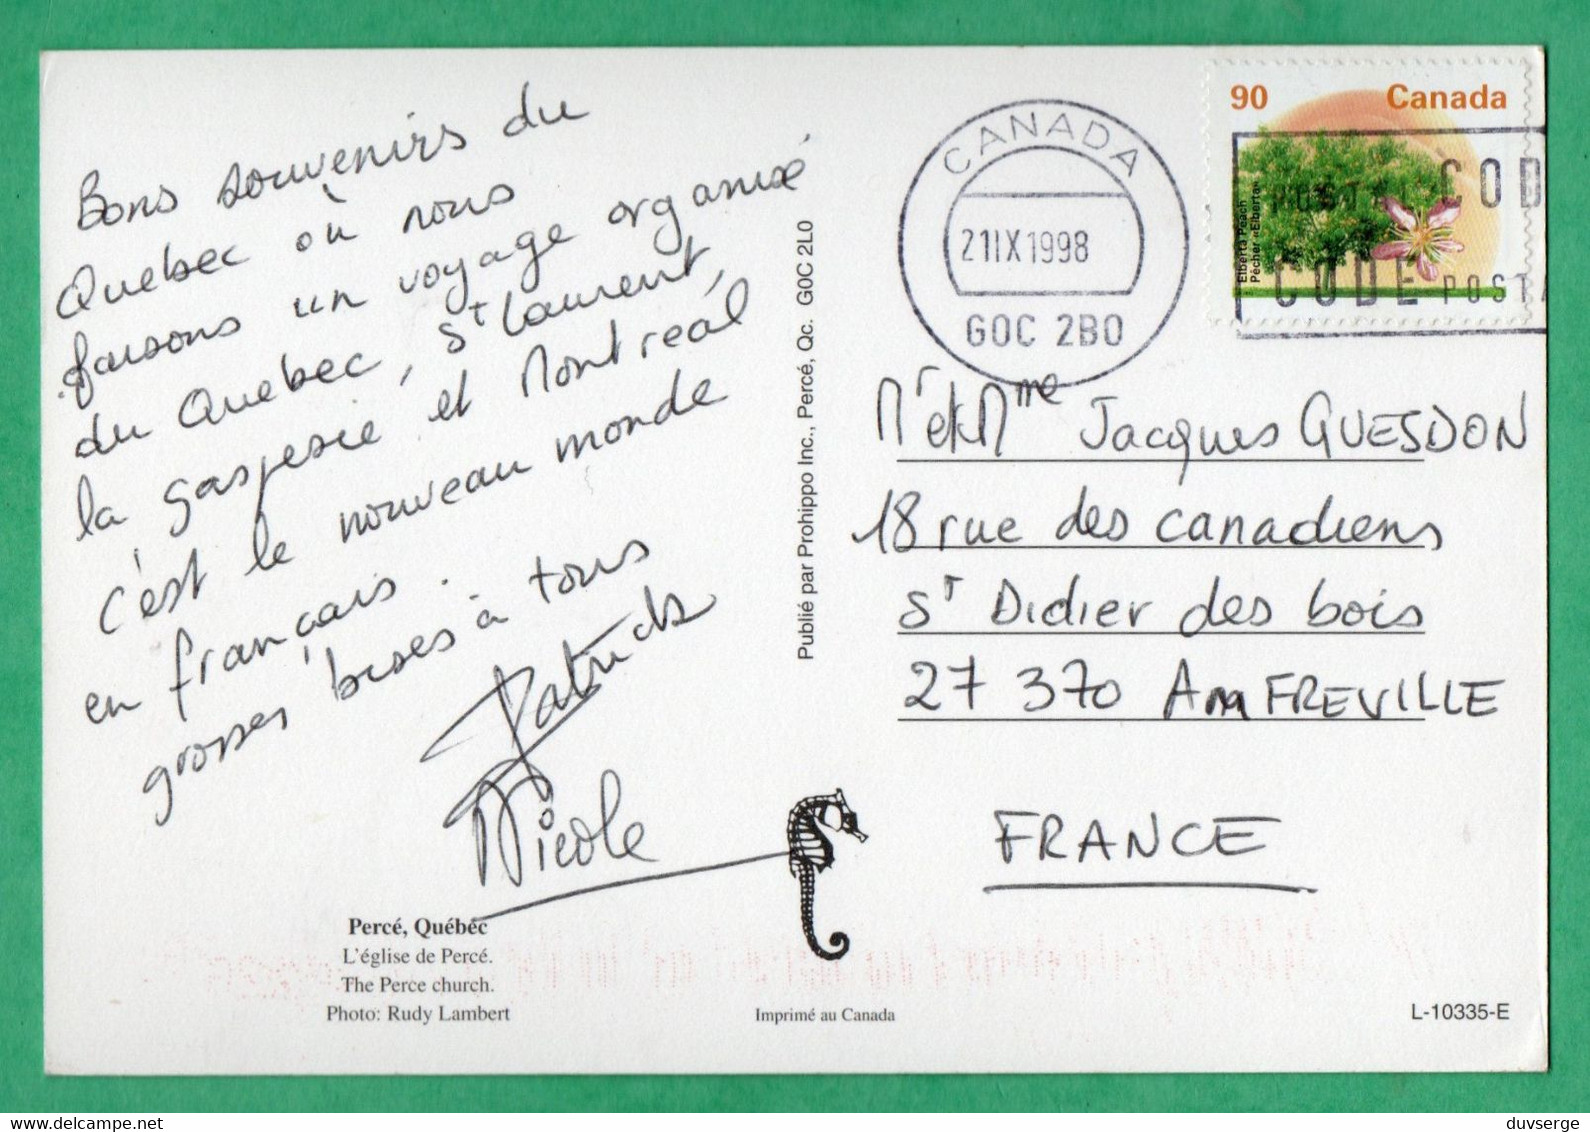 Bons souvenirs du
Quebec où nous
faisons un voyage organisé
du Quebec, St Laurent,
la gaspesie et Montreál
c'est le nouveau monde
en français.
grosses bises à tous
Patrick
Nicole
Percé, Québec
L'église de Percé.
The Perce church.
Photo: Rudy Lambert
Publié par Prohippo Inc., Percé, Qc. G0C 2L0
Imprimé au Canada
CANADA
21IX1998
G0C 2B0
90 Canada
Elberta Peach
Pêcher «Elberta»
POSTA COD
CODE POSTA
Mr et Mme Jacques GUESDON
18 rue des canadiens
St Didier des bois
27 370 AmFREVILLE
FRANCE
L-10335-E
duvserge
www.delcampe.net